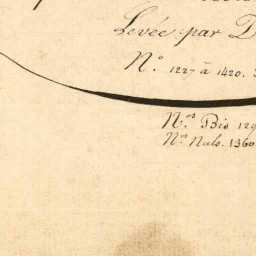 Levée par D
N.° 1227 à 1420.
N.os Bis 129
N.os Nuls. 1360